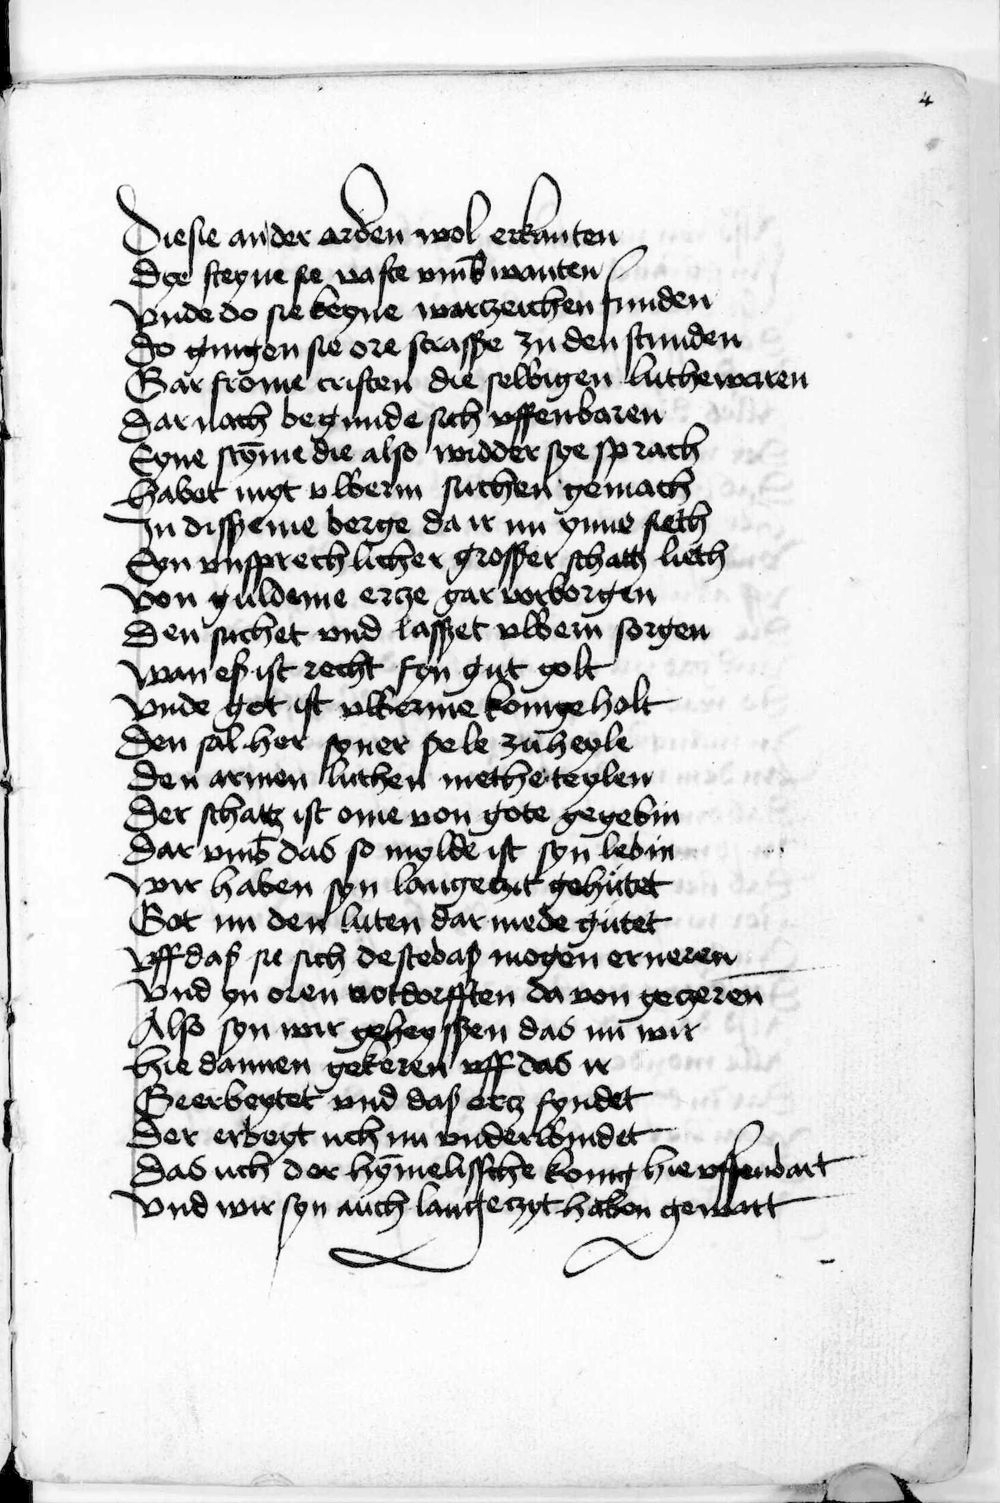 4
Die sie an der arden wol erkanten
Dye steyne sie vaste vmb wanten
Vnde do sie keyne wartzeichen funden
Do gingen sie ore strasße zu den stunden
Gar frome cristen die selbigen luthe waren
Dar nach begunde sich vffenbaren
Eyne stym̄e die also widder sye sprach
Habet nyt vlbern suchen gemach
In dissseme berge da ir nu ynne sieth
Eyn vnsprechlicher grosßer schatz lieth
Von guldeme ertze gar vorborgen
Den suchet vnd lasßet vlbern sorgen
Wan eß ist recht fyn gut golt
Vnde got ist vlberme konige holt
Den sal her syner sele zu heyle
Den armen luthen methe teylen
Der schatz ist ome von gote gegebin
Dar vmb das so mylde ist syn lebin
Wir haben syn lange tzit gehutet
Got nu den luten dar mede gutet
Vff daß sie sich deste baß mogen erneren
Vnd yn oren notdorfften da von getzeren
Also syn wir geheysßen das nu wir
Hie dannen gekeren vff das ir
Geerbeytet vnd daß ertz fyndet
Der erbeyt uch nu vnderwindet
Das uch der hym̄elissche konig hie vffenbart
Vnd wir syn auch lange tzyt haben gewart